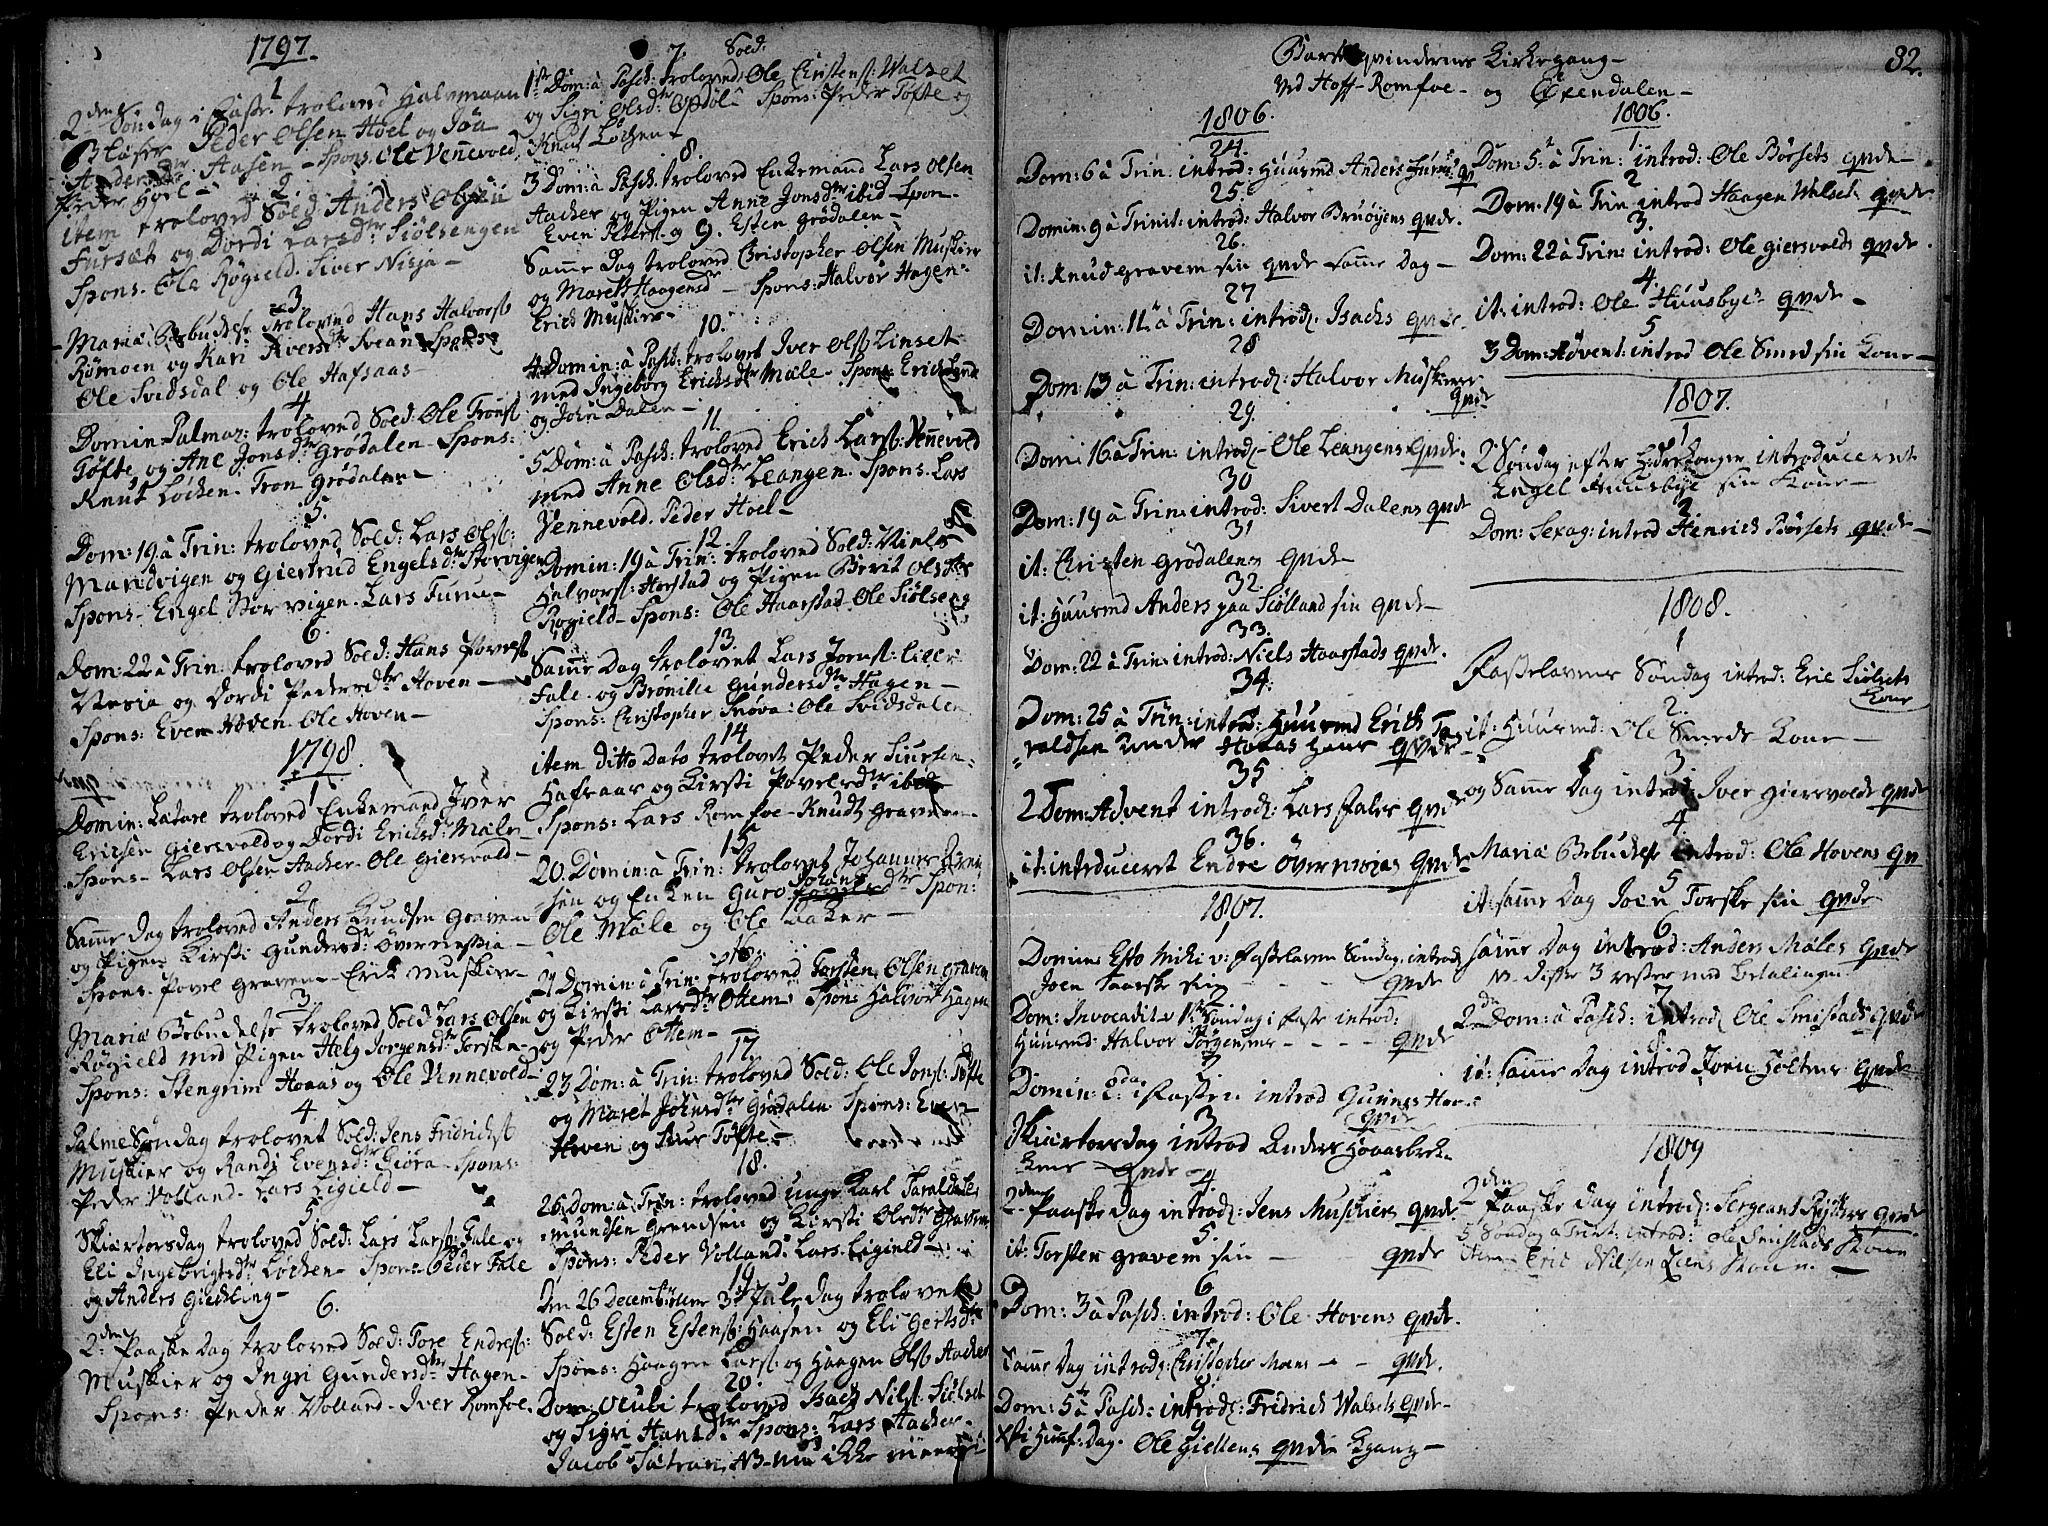 1797.
1
2den Søndag i Faste troloved Halvmaan
Blæser Peder Olsen Hoel og Joa
Andersdtr Aasen – Spons. Ole Vennevold
Peder Hoel –
2
item troloved Sold: Anders Olsen
Fursæt og Dordi Larsdtr Siølsengen
Spons. Ola Røgield. Siver Nisja –
3
Mariæ Bebudelse troloved Hans Halvorst
Rømoen og Kari Sversdtr Svean Spons
Ole Svidsdal og Ole Hafsaas –
4
Domin Palmar: troloved Sold: Ole Tronst
Tøfte og Ane Jonsdtr Grødalen – Spons:
Knut Løchen. Tron Grødalen –
5.
Dom: 19 à Trin: troloved Sold: Lars Olst:
Mandvigen og Giertrud Engelsdtr Storvigen
Spons – Engel Storvigen. Lars Furu –
6.
Dom: 22 à Trin. troloved Sold: Hans Povelst
Nesia og Dordi Pedersdtr Hoven –
Spons: Even Hoven. Ole Hoven –
1798.
1
Domin: Lætare troloved Enkemand Iver
Ericsen Giersvold og Dordi Ericksdtr Mæle –
Spons – Lars Olsen Aacher. Ole Giersvold –
2
Samme Dag troloved Anders Knudsen Gravem
og Pigen Kirsti Gundersdr Overnessia –
Spons. Povel Graven – Erik Muskier –
3
Mariæ Bebudelse troloved Sold Lars Olsen
Røgield med Pigen Helg Jorgensdtr Torske –
Spons: Stengrim Hoaas og Ole Vennevold –
4
Palme Søndag trolovet Sold: Jens Fridrichst
Muskier og Randi Evensdtr Siøra – Spons:
Peder Volland – Lars Ligield –
5
Skiærtorsdag troloved Sold: Lars Larst: Fale og
Eli Ingebrigtsdtr Løchen – Spons: Peder Fale
og Anders Giechling –
6.
2den Paaske Dag troloved Sold: Tore Endrest:
Muskier og Ingri Gundersdtr Hagen –
Spons: Peder Volland – Iver Romfoe.
7. Sold:
1ste Dom: à Pasch: troloved Ole Christenst: Walset
og Sigri Olsdtr Opdøl – Spons: Peder Tøfte og
Knut Løchen –
8.
3 Dom: à Pasch. troloved Enkemand Lars Olsen
Aacher og Pigen Anne Jonsdtr ibid Spon –
Even Peterst og Esten Grødalen –
9.
Samme Dag troloved Christopher Olsen Muskier
og Marett Haagensd – Spons: Halvor Hagen –
Erich Muskier –
10.
4 Domin: à Pasch: trolovet Iver Olst Linset
med Ingeborg Erichsdtr Mæle – Spons Erich
og John Dalen –
11.
5 Dom: à Pasch: troloved Erich Larst: Vennevold
med Anne Olsdtr Leangen. Spons: Lars
Vennevold. Peder Hoel –
12.
Domin: 19 à Trin: troloved Sold: Niels
Halvorst: Horstad og Pigen Berit Olsdtr
Røgield – Spons: Ole Haarstad. Ole Siølseng
13.
Samme Dag trolovet Lars Jornst: Lille
Fale og Brønilie Gundersdtr Hagen –
Spons: Christopher Snøva: Ole Svidsdalen
14
item ditto Dato trolovet Peder Siursen
Hafsaas og Kirsti Povelsdtr ibid
Spons: Lars Romfoe – Knudt Gravem –
15
20. Domin: à Trin: trolovet Johannes
sen og Enken Guro dtr Spon:
Ole Mæle og Ole Baker –
16.
21 Domin: à Trin: troloved Torsten Olsen Gravem
og Kirsti Larsdtr Ottem: Spons Halvor Hagen
og Peder Ottem –
17.
23 Dom: à Trin: troloved Sold: Ole Jonst: Tøfte
og Maret Johnsdtr Grødalen Spons: Even
Hoven og Siur Tøfte –
18.
26 Dom: à Trin: troloved unge Karl Taraldt
mundsen Grendsen og Kirsti Olesdtr Gravem
Spons: Peder Volland: Lars Ligield –
19
Den 26 Decembr 3de Jule Dag trolovet
Sold: Esten Estenst: Haasen og Eli Gertsdtr
Spons: Haagen Larst: og Haagen Olst Aacher
20.
Dom: Oculi troloved Isach Nilst. Siølset
og Sigri Hansdtr Spons: Lars Aacher
Jacob Sætran NB – ikke
32.
Barselqvindernes Kirkegang –
Ved Hoff – Romfoe – og Øxendalen –
1806.
24.
Dom: 6 à Trin: introd: Huusmd Anders Furus Q
25.
Domin: 9 à Trinit: introd: Halvor Bruøyens qvde.
26.
it: Knud Gravem sin qvde samme Dag –
27
Domin: 11te à Trin: introd. Isachs qvde.
28
Dom: 13 à Trin: introd: Halvor Muskiers
qvde
29.
Dom: 16 à Trin: introd – Ole Leangens Qvde.
30
Dom: 19 à Trin: introd: Sivert Dalens qvde
31
it: Christen Grødalens qvde
32.
it: Huusmd Anders paa Siølland sin qvde –
33.
Dom: 22 à Trin: introd: Niels Haarstads qvde.
34.
Dom: 25 à Trin: introd: Huusmd Erich To
roldsen under Hoaas hans qvde –
35
2 Dom: Advent introd: Lars Fales qvde
36.
it: introduceret Endre Øvernesias Qvde –
1807.
1
Domin: Esto Mihi v: Fastelavens Søndag, introd
Joen Taarske sin – – – qvde
2
Dom: Invocavit v 1ste Søndag i Faste introd:
Huusmd: Halvor Jørgensens – – – – qvde
3
Domin: 2da i Fasten introd Gunnes Hov
qvde
3
Skiærtorsdag introd Anders Hoaasbek
kens – qvde –
4.
2den Paaske Dag introd: Jens Muskiers qvde.
5.
it: Torsten Gravem sin – qvde
6
Dom: 3 à Pasch: introd: Ole Hovens qvde.
7.
Samme Dag introd: Christopher Moens – – qvde.
8
Dom: 5te à Pasch: introd: Fridrich Walsets qvde –
9
Xsti Himf: Dag. Ole Giellens qvde Kgang –
1806.
1.
Dom: 5te à Trin: introd: Ole Børsets qvde –
2
Dom: 19 à Trin introd Haagen Walsets qvde.
3.
Dom: 22 à Trin: introd: Ole Giersvolds qvde.
4.
it: introd: Ole Huusbyes qvde –
5
3 Dom: Advent: introd Ole Smed sin Kone –
1807.
1
2 Søndag efter H. 3 Konger introduceret
Engel Huusbye sin Kone –
2.
Dom: Sexag: introd Henrich Børsets qvde –
1808.
1
Fastelavens Søndag introd: Eric Siølsets
Kone
2.
it: Huusmd: Ole Smeds Kone –
3
og Samme Dag introd: Iver Giersvolds qvde
4
Mariæ Bebudelse introd: Ole Hovens qv
5
it: samme Dag Joen Torske sin qvde
6
samme Dag introd: Anders Mæles qvde
N. disse 3 rester med betalingen.
7
2den Dom: à Pasch: introd Ole Smistads qvde
8
it: samme Dag introd Joen Joltens qvde
1809
1
2den Paaske Dag introd: Sergeant Rytters qvde
5 Søndag a Trinit: introd: Ole Smistads Kone
item Eric Nilsen Liens Kone. –